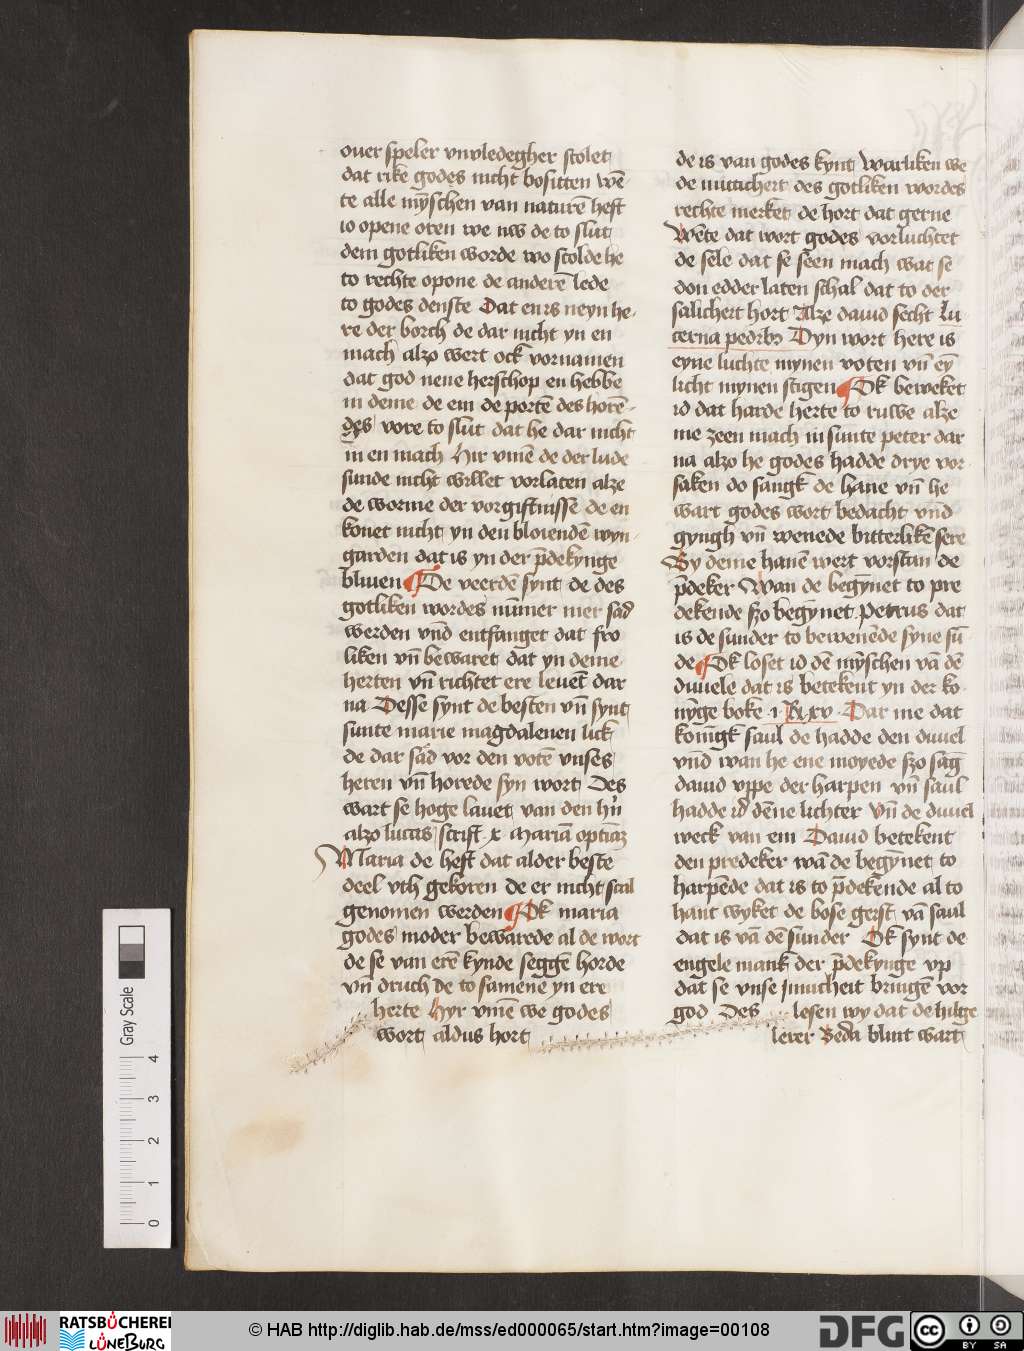 ouer speler vnvledegher scolet
dat rike godes nicht bositten wē
te alle mȳschen van naturē heft
io opene oren we nw de to slut
dem gotliken worde wo scolde he
to rechte opone de anderē lede
to godes denste Dat en is neyn he
re der borch de dar nicht yn en
mach alzo wert ock vornamen
dat god nene herschop en hebbe
in deme de em de portē des horen
des vore to slut dat he dar nicht
in en mach Hir vmē de der lude
sunde nicht willet vorlaten alze
de worme der vorgiftnisse de en
konet nicht yn den bloiendē wyn
garden dat is yn der p̄dekynge
bliuen De veerdē synt de des
gotliken wordes nūmer mer sad
werden vnd entfanget dat fro
liken vn̄ bewaret dat yn deme
herten vn̄ richtet ere leuēt dar
na Desse synt de besten vn̄ synt
sunte marie magdalenen lick
de dar sad vor den votē vnses
heren vn̄ horede syn wort Des
wart se hoge lauet van den h̄n
alzo lucas scrift x Mariā optiāz
Maria de heft dat alder beste
deel vth gekoren de er nicht scal
genomen werden Ok maria
godes moder bewarede al de wort
de se van erē kynde seggē horde
vn̄ druch de to samene yn ere
herte Hyr vmē we godes
wort aldus hort
de is van godes kynt warliken we
de mitticheit des gotliken wordes
rechte merket de hort dat gerne
Wēte dat wort godes vorluchtet
de sele dat se seen mach wat se
don edder laten schal dat to der
salicheit hort Alze dauid secht Lu
cerna pedibꝫ Dyn wort here is
eyne luchte mynen voten vn̄ eȳ
licht mynen stigen Ok beweket
id dat harde herte to ruwe alze
me zeen mach in sunte peter dar
na alzo he godes hadde drye vor
saken do sangk de hane vn̄ he
wart godes wort bedacht vnd
gyngh vn̄ wenede bitterlikē sere
By deme hanē wert vorstan de
p̄deker Wan de begȳnet to pre
dekende szo begȳnet petrus dat
is de sunder to bewenēde syne sū
de Ok loset id dē mȳschen vā dē
duuele dat is betekent yn der ko
nȳge boke i R xv Dar me dat
konīgk saul de hadde den duuel
vnd wan he ene moyede szo sāg
dauid vppe der harpen vn̄ saul
hadde id dēne lichter vn̄ de duuel
weck van em Dauid betekent
den predeker wā de begȳnet to
harpēde dat is to p̄dekēde al to
hant wyket de bose geist vā saul
dat is vā dē sunder Ok synt de
engele mank der p̄dekynge vp
dat se vnse innicheit bringē vor
god Des lesen wy dat de hilge
lerer Beda blint wart
Gray Scale
4
3
2
1
0
RATSBÜCHEREI
LÜNEBURG
© HAB http://diglib.hab.de/mss/ed000065/start.htm?image=00108
DFG
cc
BY SA